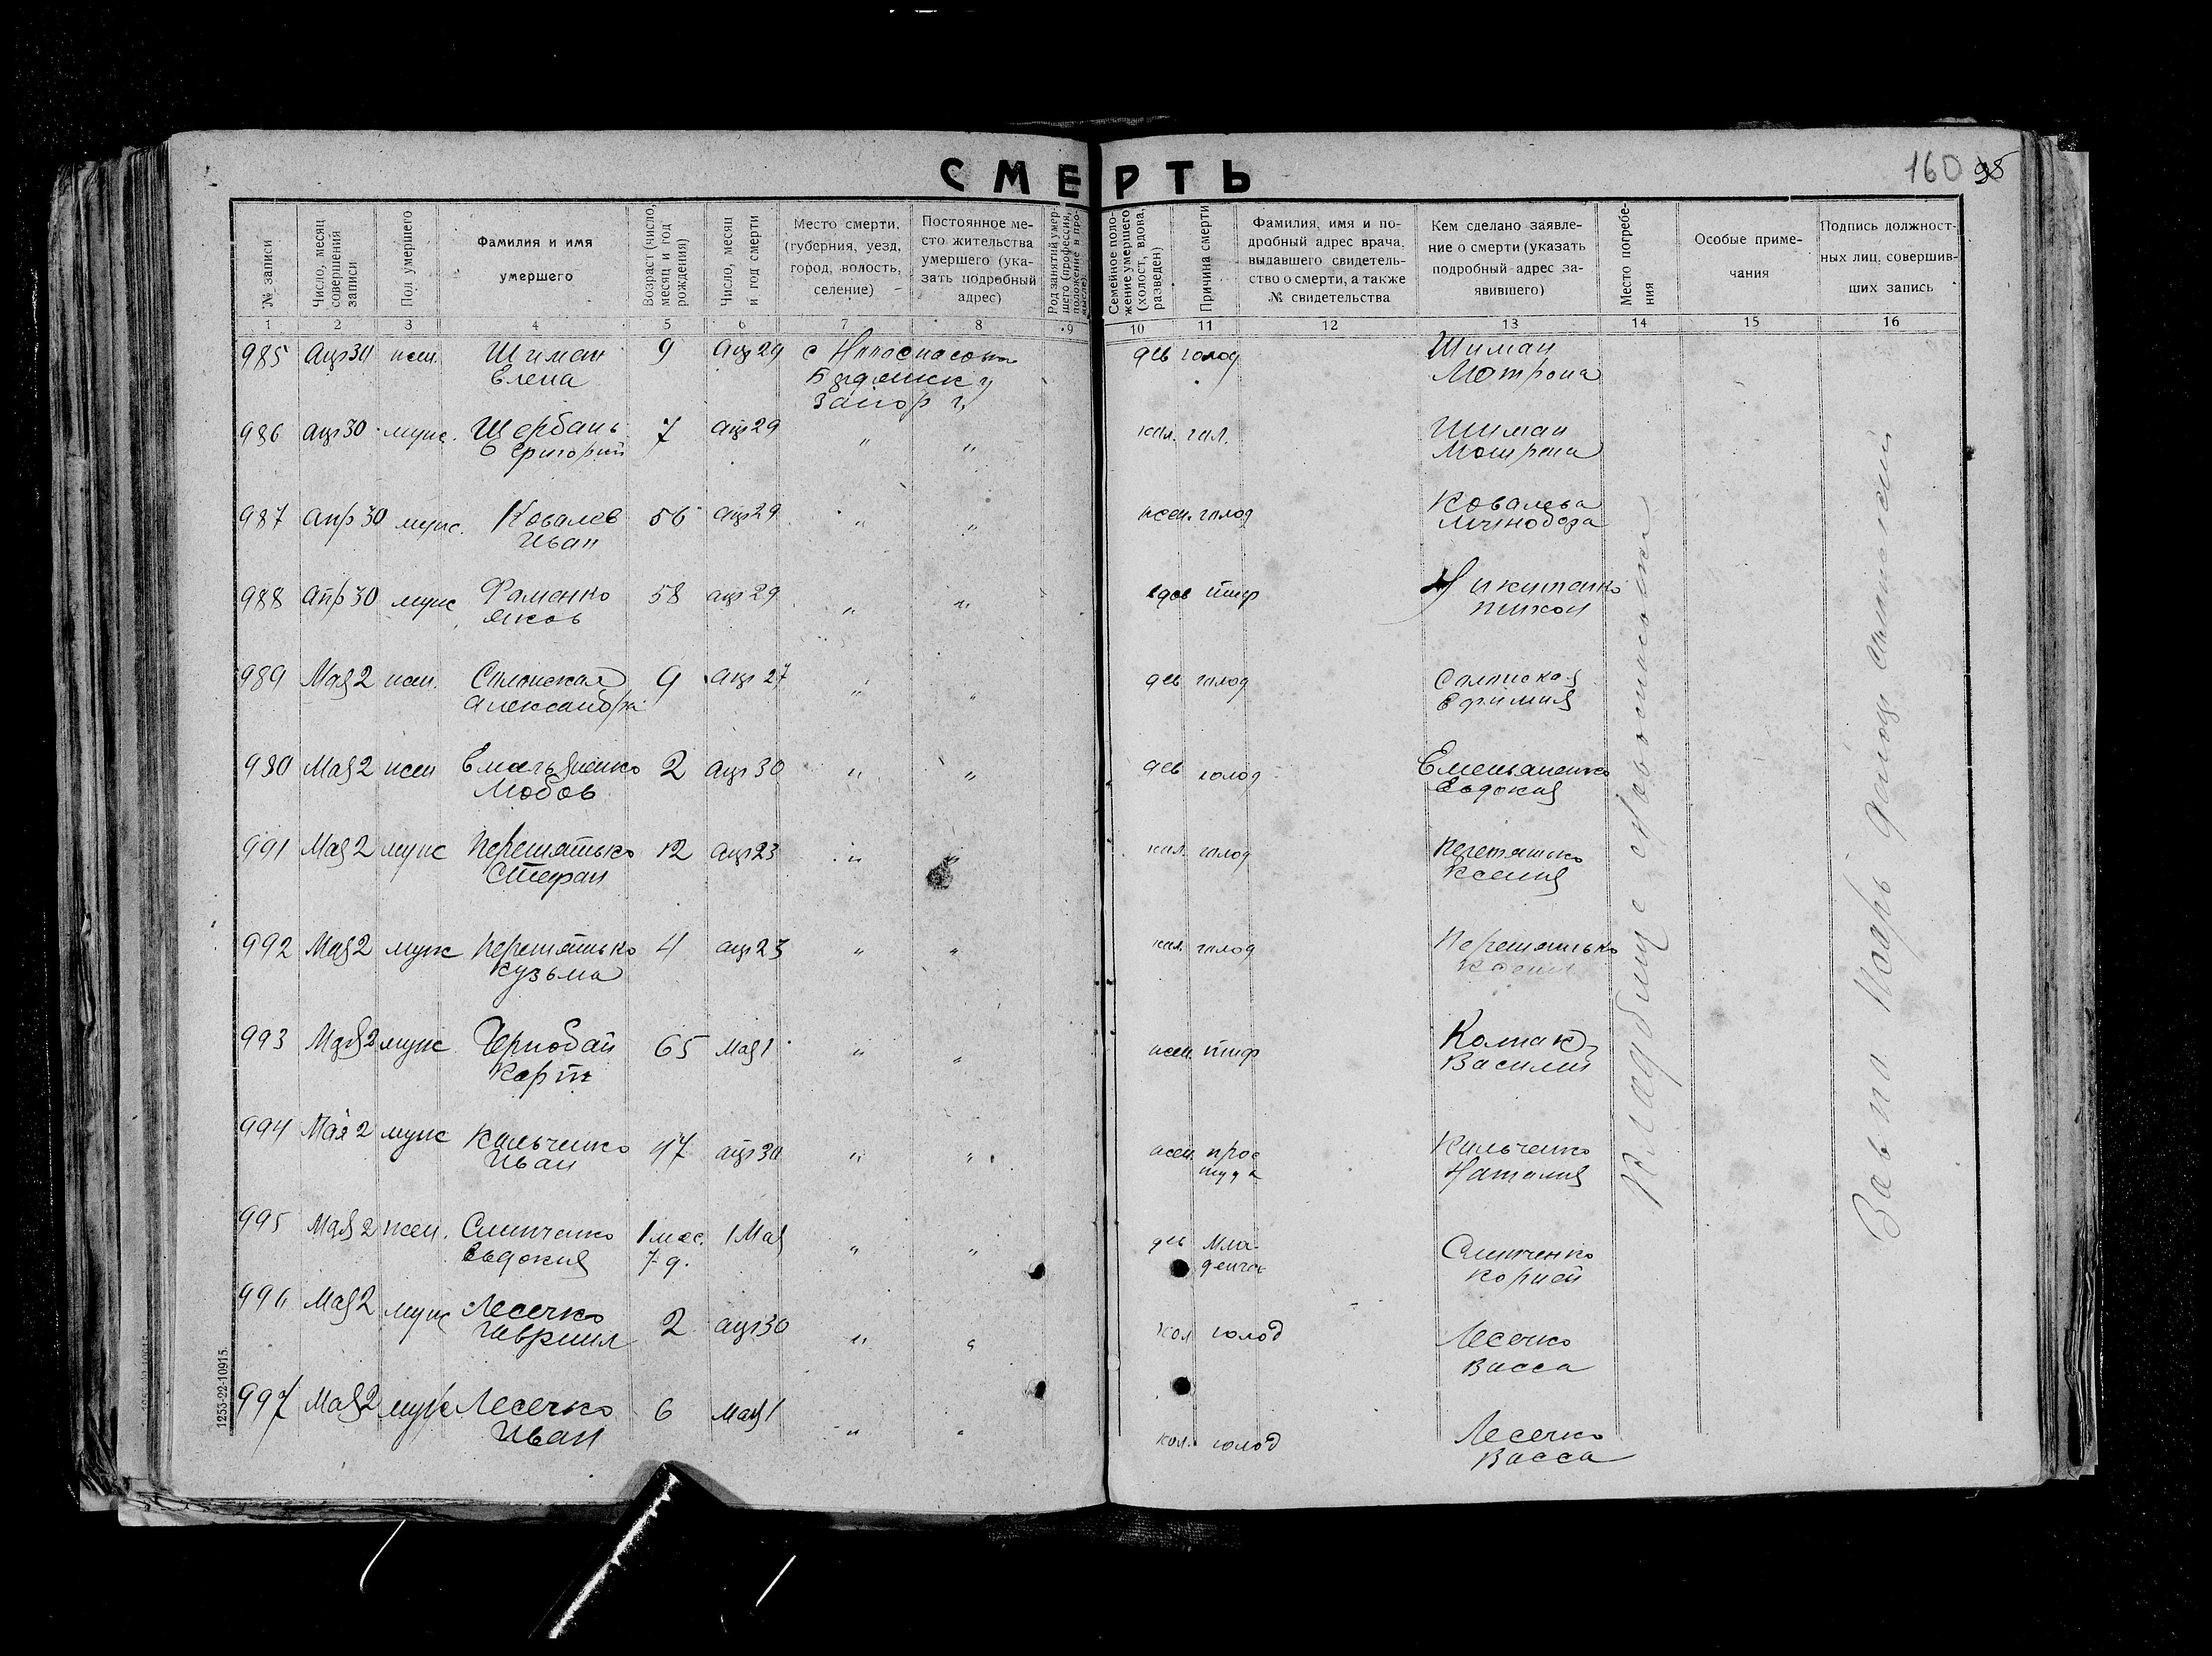 СМЕРТЬ
160 95
№ записи
Число, месяц совершения записи
Пол умершего
Фамилия и имя умершего
Возраст (число, месяц и год рождения)
Число, месяц и год смерти
Место смерти, (губерния, уезд, город, волость, селение)
Постоянное место жительства умершего (указать подробный адрес)
Род занятий умершего (профессия, положение в промысле)
Семейное положение умершего (холост, вдова, разведен)
Причина смерти
Фамилия, имя и подробный адрес врача, выдавшего свидетельство о смерти, а также № свидетельства
Кем сделано заявление о смерти (указать подробный адрес заявившего)
Место погребения
Особые примечания
Подпись должностных лиц, совершивших запись
1 2 3 4 5 6 7 8 9 10 11 12 13 14 15 16
985 Апр 30 жен. Шиман 9 Апр 29 с дев голод Шиман
Елена Мотрона
Запор г.
986 Апр 30 муж. Щербань 7 апр 29 " " хол. гол. Шиман
Григорий Мотрона
987 Апр 30 муж. Ковалев 56 апр 29 " " жен. голод Ковалева
Иван
988 Апр 30 муж Фоменко 58 апр 29 " " вдов тиф Никитенко
Яков Тихон
989 Мая 2 жен. 9 Апр 27 " " дев голод
Александра Ефимия
990 Мая 2 жен Емельяненко 2 Апр 30 " " дев голод Емельяненко
Любов Евдокия
991 Мая 2 муж Перетятько 12 апр 23 " " хол. голод Перетятько
Стефан Ксения
992 Мая 2 муж Перетятько 4 апр 23 " " хол. голод Перетятько
Кузьма Ксения
993 Мая 2 муж Чернобай 65 Мая 1 " " жен тиф Колпак
Карп Василий
994 Мая 2 муж Кильченко 47 апр 30 " " жен прос Кильченко
Иван туда Наталия
995 Мая 2 жен. Слипченко 1 мес. 1 Мая " " дев Мла- Слипченко
Евдокия 7 д. денчес Корней
996 Мая 2 муж Лесечко 2 апр 30 " " хол голод Лесечко
Гавриил Васса
997 Мая 2 муж Лесечко 6 Мая 1 " " хол. голод Лесечко
Иван Васса
Кладбище с Новоспасовка
Зав по
1253-22-10915.